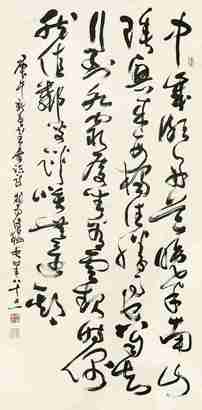 中歲頗好道晚家南山
陲興來每獨往勝事空自知
行到水窮處坐看雲起時偶
然值鄰叟談笑無還期
庚午新春書王摩詰詩